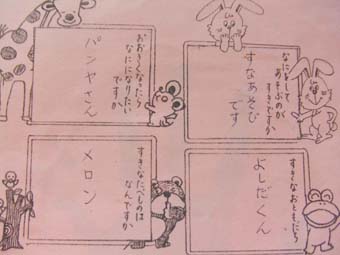 なにをして
あそぶのが
すきですか
すなあそび
です
おおきくなったら
なにになりたい
ですか
パンヤさん
すきなおともだち
よしだくん
すきなたべものは
なんですか
メロン